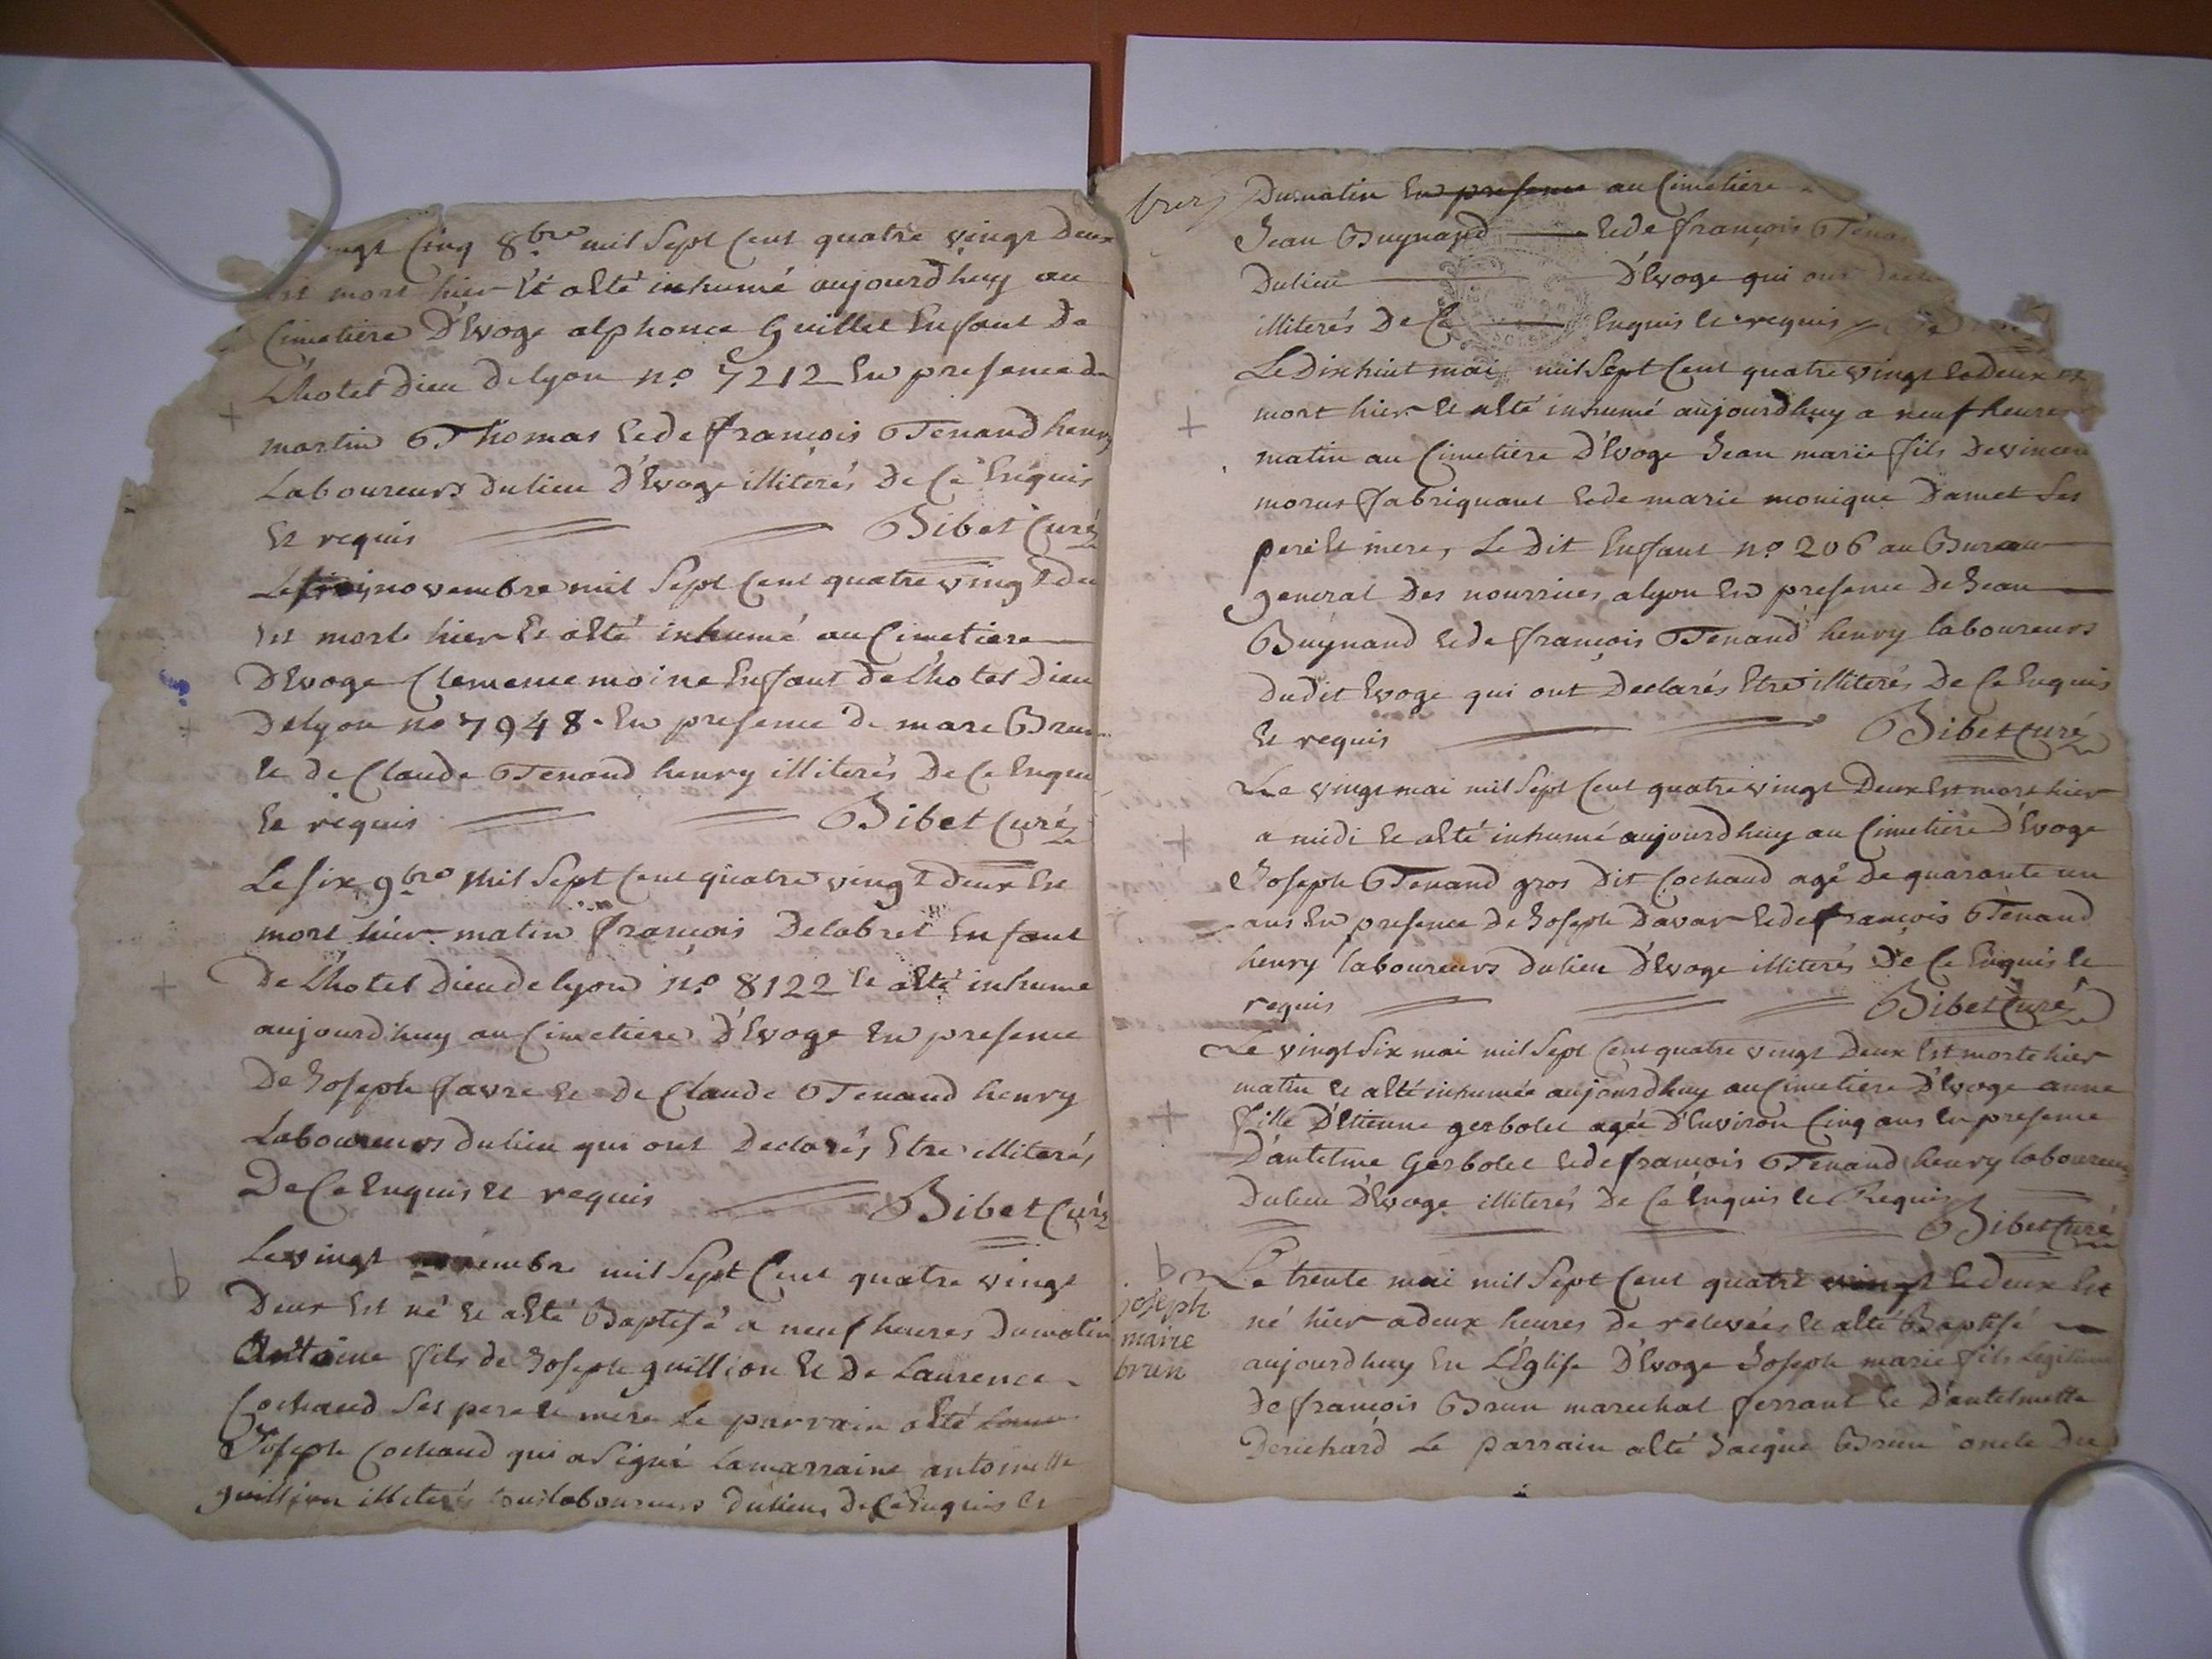 vingt Cinq 8bre mil Sept Cent quatre vingt deux
Est mort hier Et a Eté inhumé aujourd huy au
Cimetiere D'Evoge alphonce Guillet Enfant De
L'hotel Dieu De lyon no 7212 En presence de
martin Thomas Et de françois Tenand henry
Laboureurs du lieu D'Evoge illiterés De Ce Enquis
Et requis Bibet Curé
novembre mil Sept Cent quatre vingt deu
Est morte hier Et a Eté inhumé au Cimetiere
D'Evoge Clemence moine Enfant de L'hotel Dieu
De lyon no 7948. En presence de marc Brun
Et de Claude Tenand henry illiterés De Ce Enqui
Et requis Bibet Curé
Le Six 9bre Mil Sept Cent quatre vingt deux Est
mort hier matin françois Delabret Enfant
De L'hotel Dieu de lyon no 8122 Et a Eté inhumé
aujourd'huy au Cimetiere D'Evoge En presence
De Joseph favre Et De Claude Tenand henry
Laboureurs du lieu qui ont Declarés Etre illiterés
De Ce Enquis Et requis Bibet Curé
b
Le vingt mil Sept Cent quatre vingt
Deux Est né Et a Eté Baptisé a neuf heures Du matin
Antoine fils de Joseph guillion Et De Laurence
Cochaud Ses pere Et mere Le parrain a Eté
Joseph Cochaud qui a Signé La marraine antoinette
guillion illiterés tous laboureurs du lieu, De Ce Enquis Et
Du matin En presence au Cimetiere
Jean Buynand Et de françois Tenan
Du lieu D'Evoge qui ont
illiterés De Ce Enquis Et requis
Le Dix huit mai mil Sept Cent quatre vingt Et Deux est
mort hier Et a Eté inhumé aujourd huy a neuf heures
matin au Cimetiere D'Evoge Jean marie fils De vincen
morus fabriquant Et de marie monique Damet Ses
pere Et mere, Le Dit Enfant no 206 au Bureau
general Des nourrices a lyon En presence De Jean
Buynand Et de françois Tenand henry laboureurs
Du dit Evoge qui ont Declarés Etre illiterés De Ce Enquis
Et requis Bibet Curé
Le vingt mai mil Sept Cent quatre vingt Deux Est mort hier
a midi Et a Eté inhumé aujourd huy au Cimetiere D'Evoge
Joseph Tenand gros Dit Cochaud agé De quarante un
ans En presence De Joseph Davar Et de françois Tenand
henry laboureurs Du lieu D'Evoge illiterés De Ce Enquis Et
requis Bibet Curé
Le vingt Six mai mil Sept Cent quatre vingt Deux Est morte hier
matin Et a Eté inhumée aujourd huy au Cimetiere D'Evoge anne
fille D'Etienne gerbolet agée D'Environ Cinq ans En presence
D'antelme Gerbolet Et de françois Tenand henry laboureurs
Du lieu D'Evoge illiterés De Ce Enquis Et Requis
Bibet Curé
b
joseph
marie
brun
Le trente mai mil Sept Cent quatre vingt Et deux Est
né hier a deux heures De relevées Et a Eté Baptisé
aujourd huy En L'Eglise D'Evoge Joseph marie fils Legitime
De françois Brun marechal ferrant Et D'antelmette
Derichard Le parrain a Eté Jacque Brun oncle Du